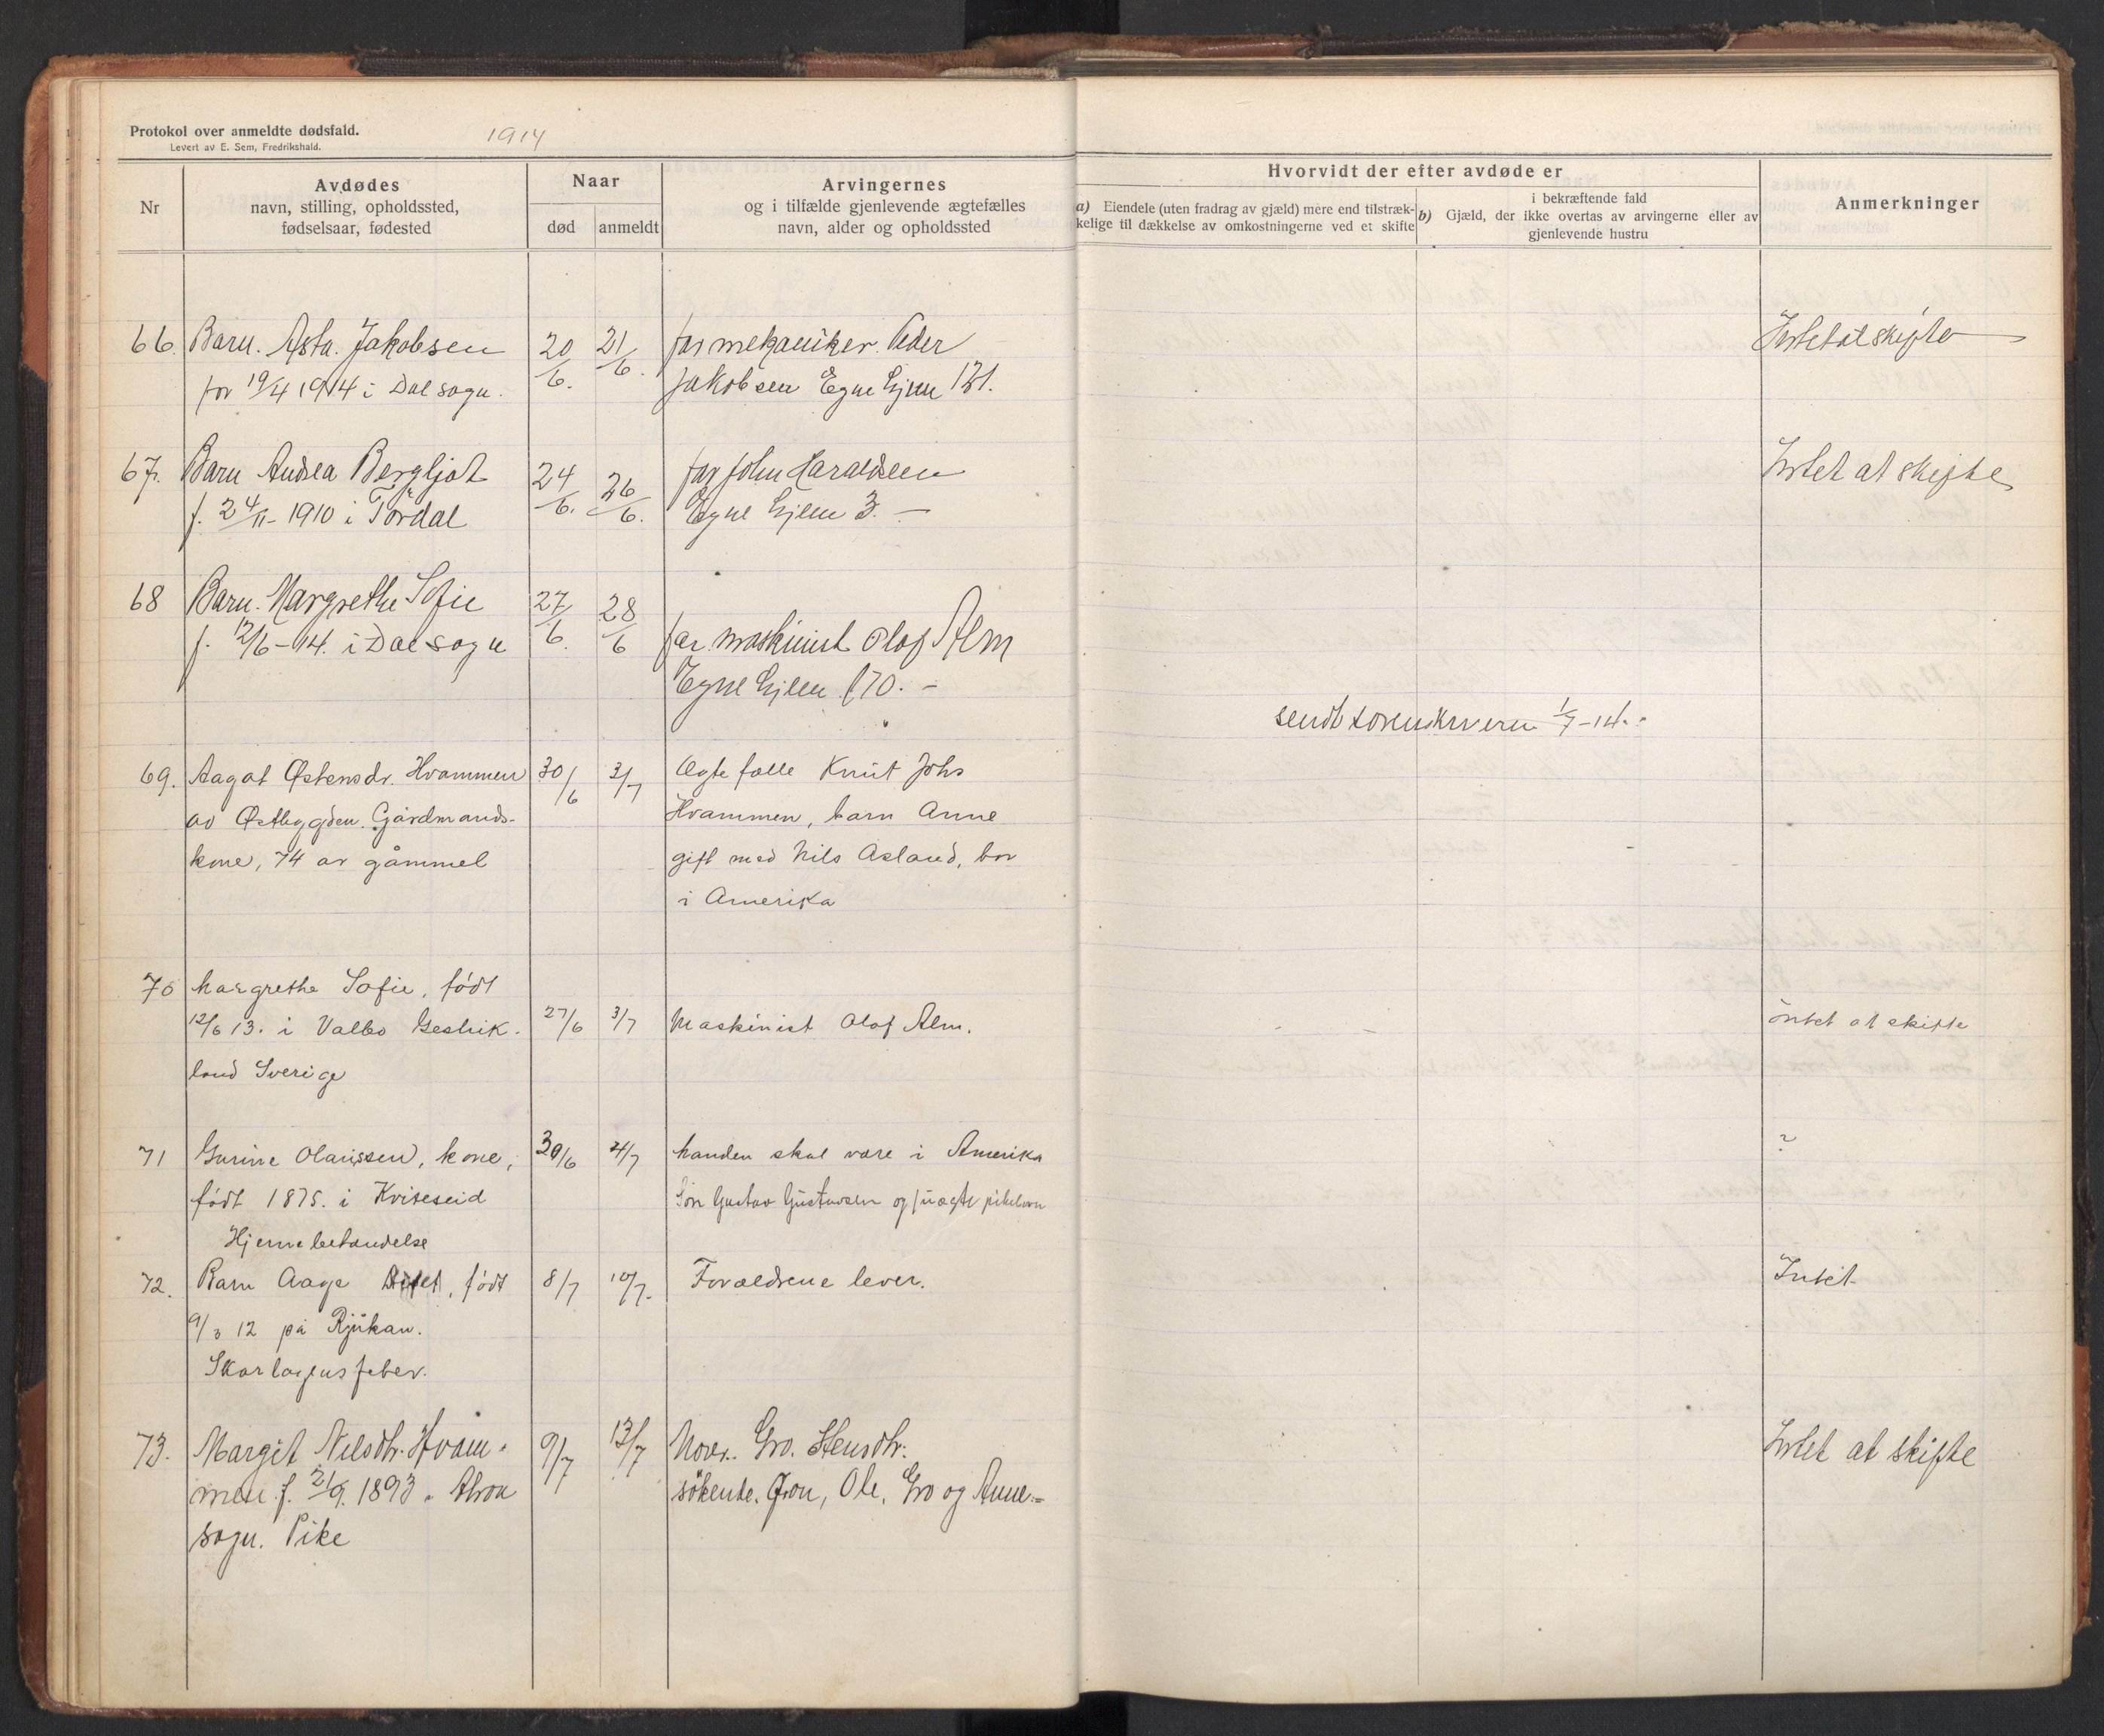 Protokol over anmeldte dødsfald.
Levert av E. Sem, Fredrikshald.
1914
Nr
Avdødes
navn, stilling, opholdssted,
fødselsaar, fødested
Naar
død
anmeldt
Arvingernes
og i tilfælde gjenlevende ægtefælles
navn, alder og opholdssted
Hvorvidt der efter avdøde er
a) Eiendele (uten fradrag av gjæld) mere end tilstræk-
kelige til dækkelse av omkostningerne ved et skifte
i bekræftende fald
b) Gjæld, der ikke overtas av arvingerne eller av
gjenlevende hustru
Anmerkninger
66. Barn. Asta. Jakobsen 20/6. 21/6. far mekaniker. Peder Intet at skifte
før 19/4 1914 i Dal sogn. Jakobsen Egne hjem 131.
67. Barn Andrea Bergljot 24/6. 26/6. far John Haraldsen Intet at skifte
f. 24/11-1910 i Tördal Egne hjem 3. —
68 Barn. Margrethe Sofie 27/6. 28/6
f. 12/6-14. i Dal sogn far maskinist Olaf Alm
Egne hjem 170. –
sendt sorenskriveren 1/7-14.
69. Aagot Østensdr. Hvammen 30/6 3/7 Ægtefælle Knut Johs
av Østbygden. Gårdmands- Hvammen, barn Anne
kone, 74 år gåmmel gift med Nils Asland, bor
i Amerika
70 Margrethe Sofie, født
12/6 13. i Valbo Gestrik- 27/6 3/7 Maskinist Olof Alm. intet at skifte
land Sverige
71 Gurine Olavssen, kone, 30/6 4/7 Manden skal være i Amerika ?
født 1875. i Kviteseid Søn Gustav Gustavsen og 1 uægte pikebarn
Hjernebetændelse
72. Barn Aage, født 8/7 10/7. Forældrene lever. Intet
9/3 12 på Rjukan.
Skarlagensfeber.
73. Margit Nilsdtr. Hvam- 9/7 13/7 Mor. Gro. Stensdtr. Intet at skifte
men f. 21/9. 1893. Atraa søkende. Jon, Ole, Gro og Anne
sogn. Pike